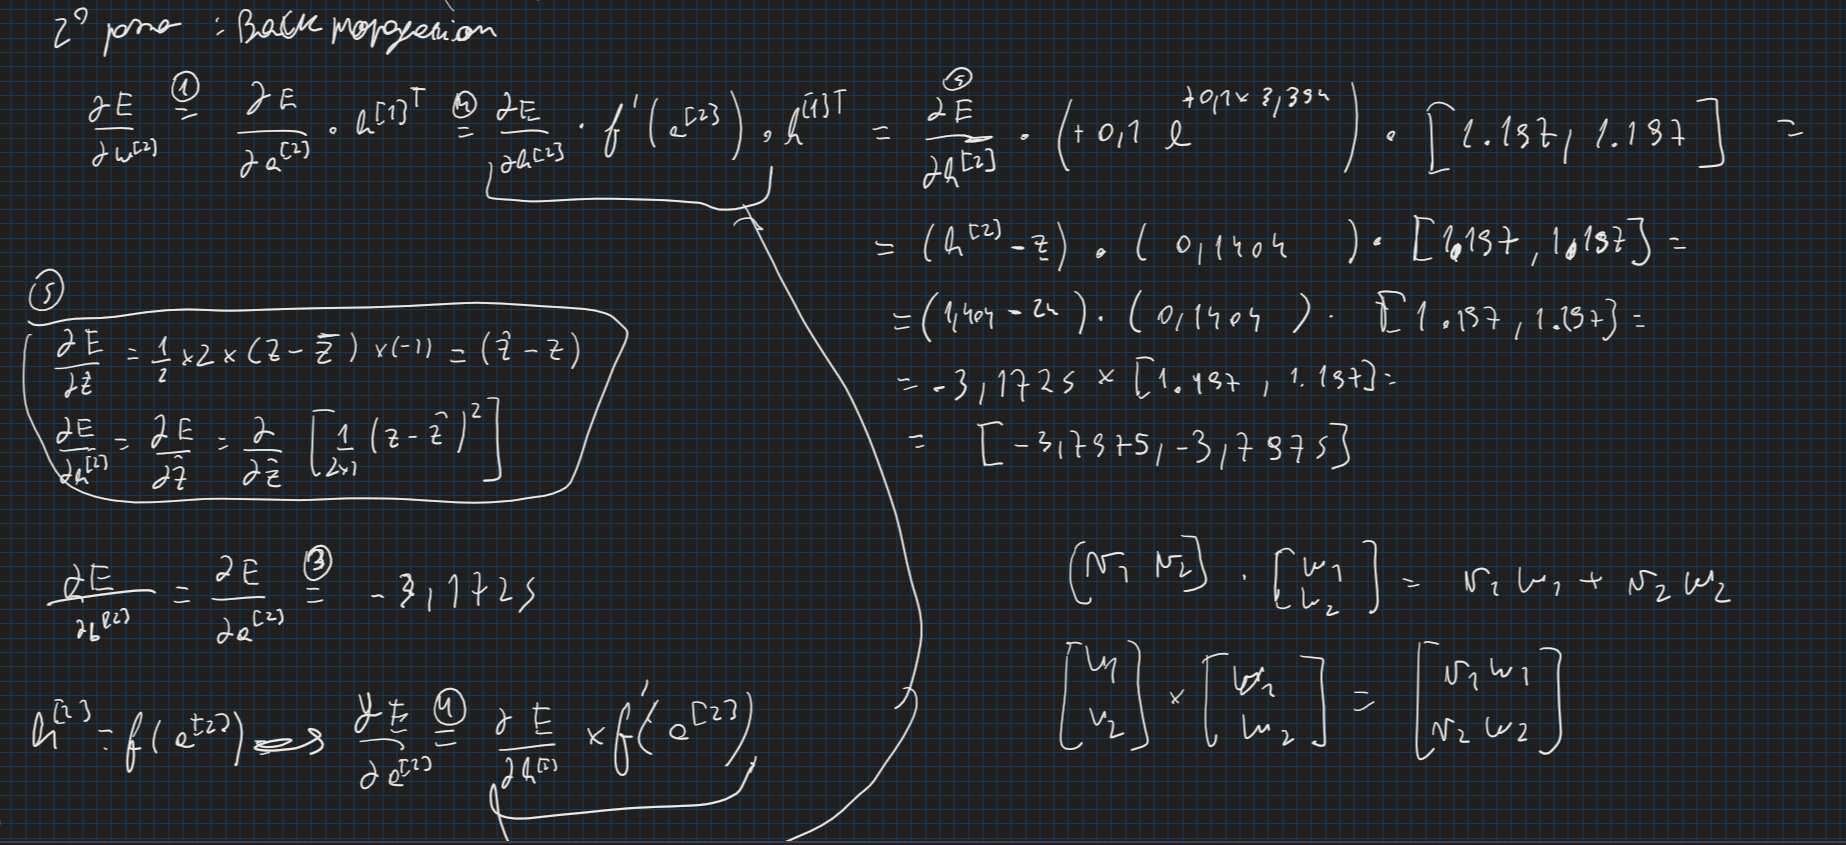 2º passo : Backpropagation
∂E/∂w^[2] =① ∂E/∂a^[2] · h^[1]T =④ ∂E/∂h^[2] · f'(a^[2]) · h^[1]T = ⑤ ∂E/∂h^[2] · (+0,1 e^(+0,1×3,394)) · [1.197, 1.197] =
= (h^[2] - z) · (0,1404) · [1.197, 1.197] =
= (1,404 - 24) · (0,1404) · [1.197, 1.197] =
= -3,1725 × [1.197, 1.197] =
= [-3,7975, -3,7975]
⑤
∂E/∂ẑ = 1/2 × 2 × (z - ẑ) × (-1) = (ẑ - z)
∂E/∂h^[2] = ∂E/∂ẑ = ∂/∂ẑ [1/(2×1) (z - ẑ)^2]
∂E/∂b^[2] = ∂E/∂a^[2] =③ -3,1725
h^[2] = f(a^[2]) => ∂E/∂a^[2] =④ ∂E/∂h^[2] × f'(a^[2])
[v1 v2] · [w1 w2] = v1 w1 + v2 w2
[v1 v2] × [w1 w2] = [v1 w1 v2 w2]